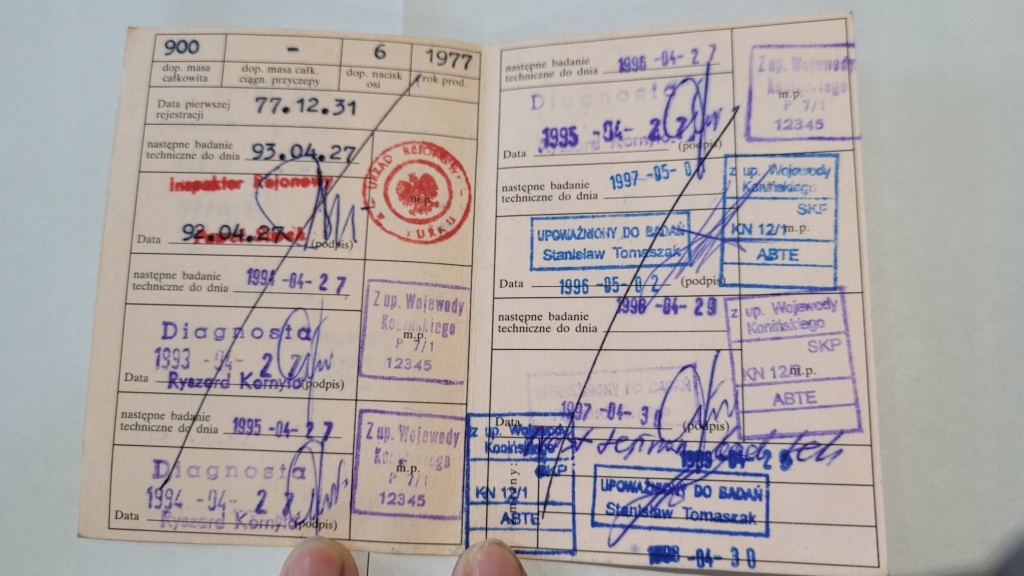 900 - 6 1977
dop. masa całkowita dop. masa całk. ciągn. przyczepy dop. nacisk osi rok prod.
Data pierwszej rejestracji 77.12.31
następne badanie techniczne do dnia 93.04.27
Inspektor Rejonowy
URZĄD REJONOWY
w TURKU
m.p.
Data 92.04.27 (podpis)
następne badanie techniczne do dnia 1994-04-27
Z up. Wojewody
Konińskiego
m.p.
P 7/1
12345
Diagnosta
1993-04-27
Data Ryszard (podpis)
następne badanie techniczne do dnia 1995-04-27
Z up. Wojewody
Konińskiego
m.p.
P 7/1
12345
Diagnosta
1994-04-27
Data Ryszard (podpis)
następne badanie techniczne do dnia 1996-04-27
Z up. Wojewody
Konińskiego
m.p.
P 7/1
12345
Diagnosta
Data 1995-04-27 (podpis)
następne badanie techniczne do dnia 1997-05-0
z up. Wojewody
Konińskiego
SKP
KN 12/1 m.p.
ABTE
UPOWAŻNIONY DO BADAŃ
Stanisław Tomaszak
Data 1996-05-02 (podpis)
następne badanie techniczne do dnia 1998-04-29
z up. Wojewody
Konińskiego
SKP
KN 12/ m.p.
ABTE
UPOWAŻNIONY DO BADAŃ
1997-04-3
Data (podpis)
z up. Wojewody
Konińskiego
SKP
KN 12/1
ABTE
UPOWAŻNIONY DO BADAŃ
Stanisław Tomaszak
-04-30